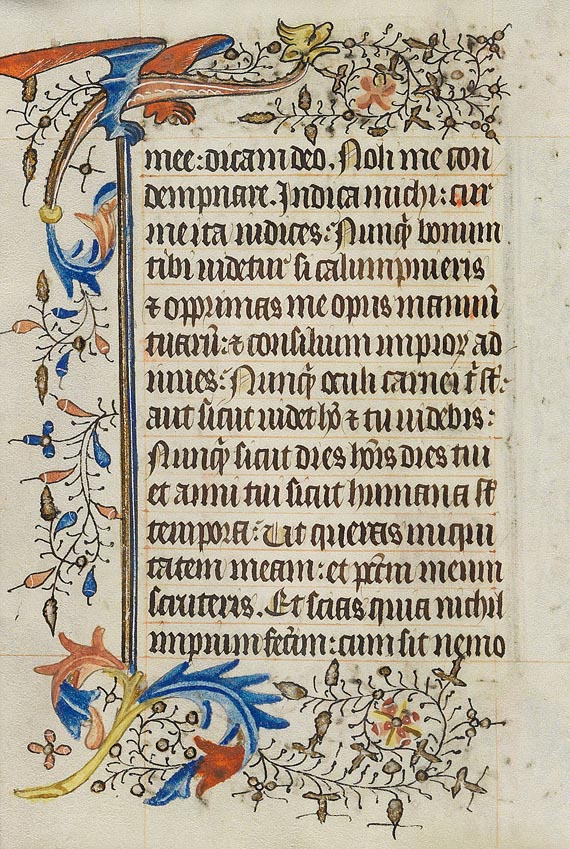 mee: dicam deo. Noli me con
dempnare. Indica michi: cur
me ita iudices: Nunqͥ bonum
tibi uidetur si calumpnieris
⁊ opprimas me opus manuū
tuarū: ⁊ consilium impioꝝ ad
iuues: Nunqͥ oculi carnei t̄ st̄:
aut sicut uidet hō ⁊ tu uidebis:
Nunqͥ sicut dies hoīs dies tui
et anni tui sicut humana st̄
tempora: Ut queras iniqui
tatem meam: et pctm̄ meum
scruteris. Et scias quia nichil
impium fecīm: cum sit nemo